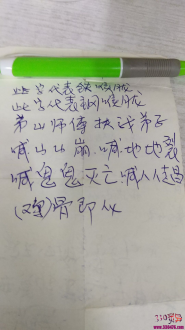 此字代表铁收肢、
此字代表钢收肢
弟山师傅扶我弟子
喊山山崩、喊地地裂
喊鬼鬼灭亡喊人人倡
骨即